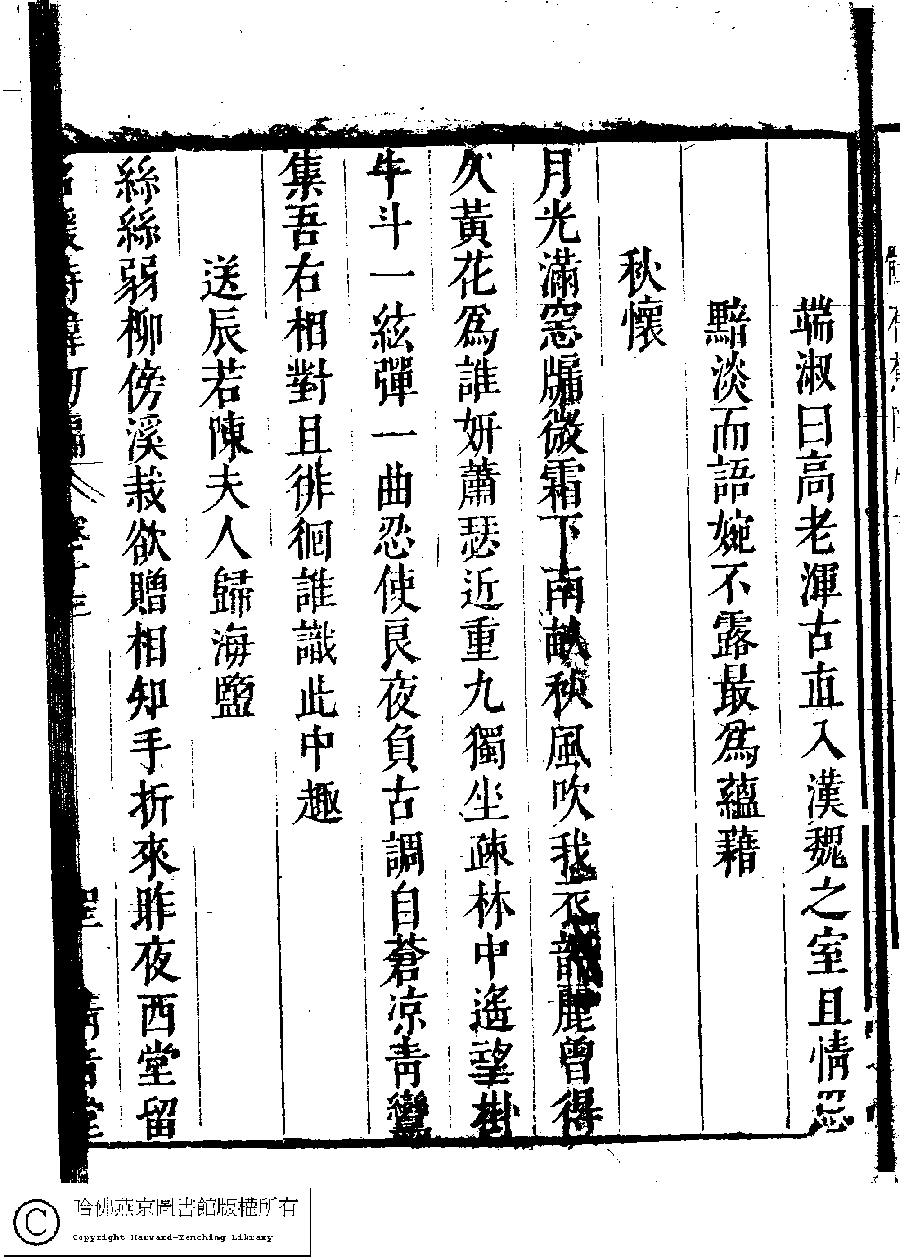 端淑曰高老渾古直入漢魏之室且情思
黯淡而語婉不露最爲蘊藉
秋懷
月光滿窓牖微霜下南畝秋風吹我衣韶麗曾得
久黃花爲誰妍蕭瑟近重九獨坐疎林中遙望掛
牛斗一絃彈一曲忍使良夜負古調自蒼凉青鸞
集吾右相對且徘徊誰識此中趣
送辰若陳夫人歸海鹽
絲絲弱柳傍溪栽欲贈相知手折來昨夜西堂留
名媛詩緯初編 卷十三 清音堂
哈佛燕京圖書館版權所有
Copyright Harvard-Yenching Library